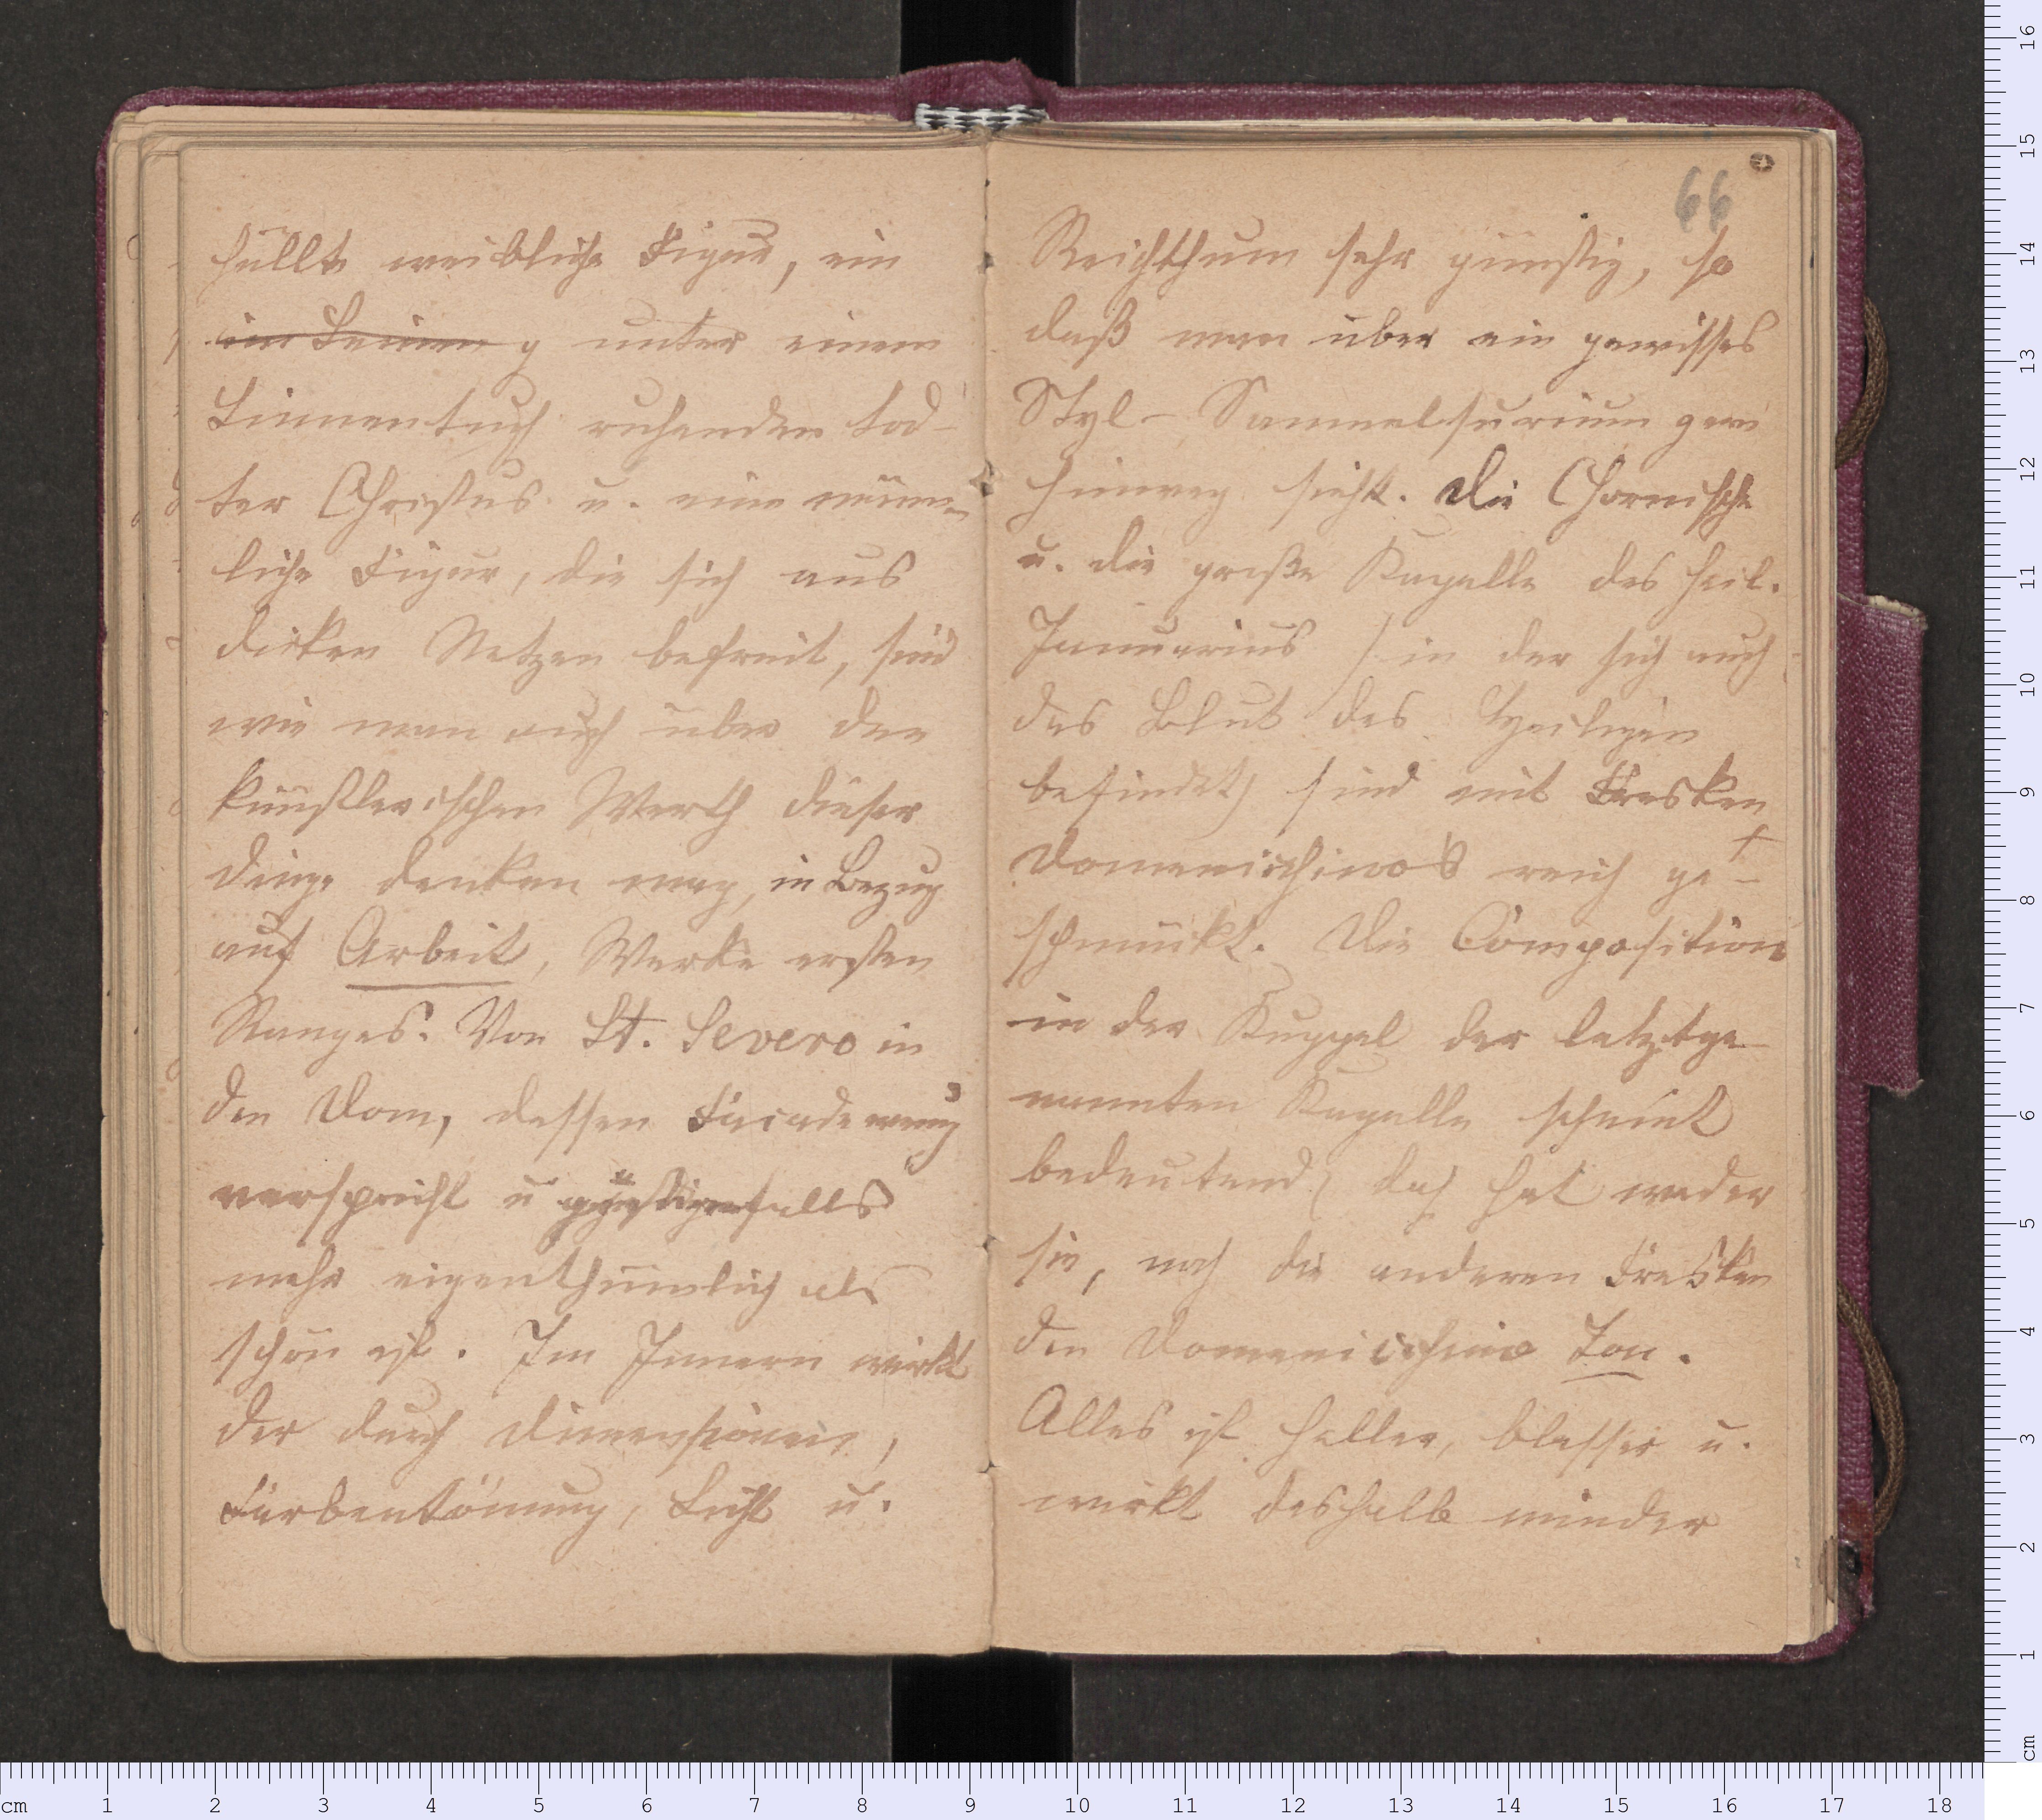 hüllte weibliche Figur, ein
im Leinen g unter einem
Linnentuch ruhender tod-
ter Christus u. eine männ-
liche Figur, die sich aus
dicken Netzen befreit, sind
wie man auch über den
künstlerischen Werth dieser
Dinge denken mag, in Bezug
auf Arbeit, Werke ersten
Ranges. Von St. Severo in
den Dom, dessen Facade wenig
verspricht u günstigenfalls
mehr eigenthümlich als
schön ist. Im Innern wirkt
der durch Dimensionen,
Farbentönung, Licht u.
66
Reichthum sehr günstig, so
daß man über ein gewisses
Styl-Sammelsurium gern
hinweg sieht. Die Chornische
u. die große Kapelle des heil.
Januarius (in der sich auch
das Blut des Heiligen
befindet) sind mit Fresken
Domenichino's reich ge-
schmückt. Die Composition
in der Kuppel der letztge-
nannten Kapelle scheint
bedeutend, doch hat weder
sie, noch die anderen Fresken
den Domenichino Ton.
Alles ist heller, blasser u.
wirkt deshalb minder